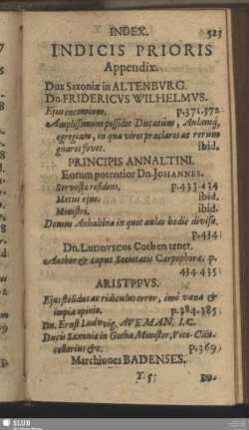 INDEX. 523
INDICIS PRIORIS
Appendix.
Dux Saxoniæ in ALTENBURG.
Dn. FRIDERICUS WILHELMUS.
Ejus encomium. p.371.372.
Amplissimum possidet Ducatum, Aulamq́;
egregiam, in qua viros præclaros ac rerum
gnaros fovet. ibid.
PRINCIPIS ANNALTINI.
Eorum potentior Dn. JOHANNES.
Servestæ residens, p.433.434
Motus ejus. ibid.
Ministri. ibid.
Domus Anhaltina in quot aulas hodie divisa.
p.434.
Dn. LUDOVICUS Cothen tenet.
Author & caput Societatis Carpophoræ. p.
434.435
ARISTPPUS.
Ejus stolidus ac ridiculus error, imò vana &
impia opinio. p.384.385.
Dn. Ernst Ludwig. AVEMAN. I.C.
Ducis Saxoniæ in Gotha Minister, Vice-Can-
cellarius &c. p.369.
Marchiones BADENSES.